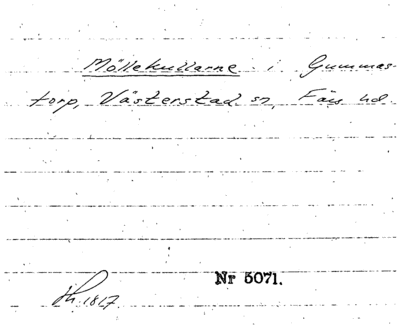 Möllekullarne i Gummas-
torp, Västerstad sn, Färs hd.
Nr 5071.
1817